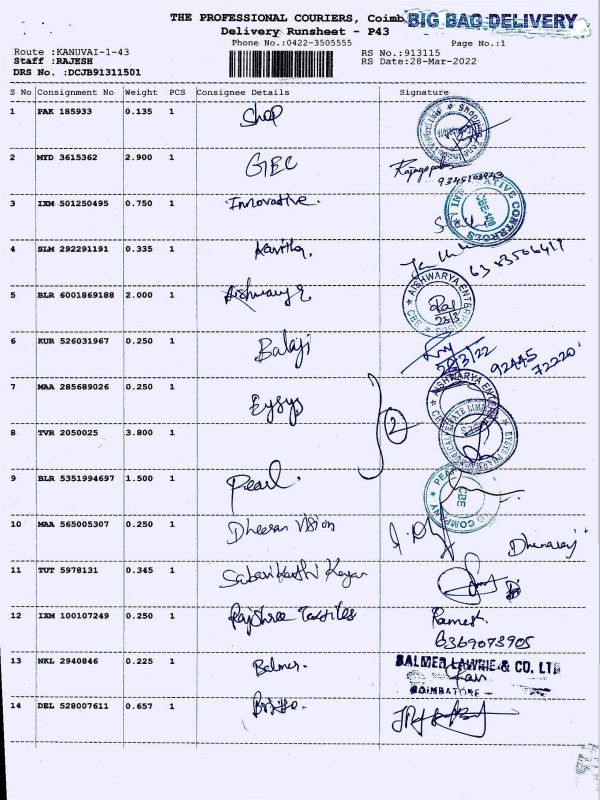 THE PROFESSIONAL COURIERS, Coimb BIG BAG DELIVERY
Delivery Runsheet - P43
Phone No.:0422-3505555 Page No.:1
Route :KANUVAI-1-43 RS No.:913115
Staff :RAJESH RS Date:28-Mar-2022
DRS No. :DCJB91311501
S No Consignment No Weight PCS Consignee Details Signature
1 PAK 185933 0.135 1 Shop
2 MYD 3615362 2.900 1 GTEC
9345103943
3 IXM 501250495 0.750 1 Innovative.
4 SLM 292291191 0.335 1 Kavitha,
6383506419
5 BLR 6001869188 2.000 1 Aishwarya
AISHWARYA ENTERPRISES CBE
28/3
6 KUR 526031967 0.250 1 Balaji
28/3/22 92445 72220
7 MAA 285689026 0.250 1 Eysys
AISHWARYA
8 TVR 2050025 3.800 1 2
9 BLR 5351994697 1.500 1 Pearl.
CBE COMPANY
10 MAA 565005307 0.250 1 Dheeran Vision
11 TUT 5978131 0.345 1
12 IXM 100107249 0.250 1 Rajshree Textiles Ramesh.
6369073905
13 NKL 2940846 0.225 1 Balmer. BALMER LAWRIE & CO. LTD
COIMBATORE
14 DEL 528007611 0.657 1